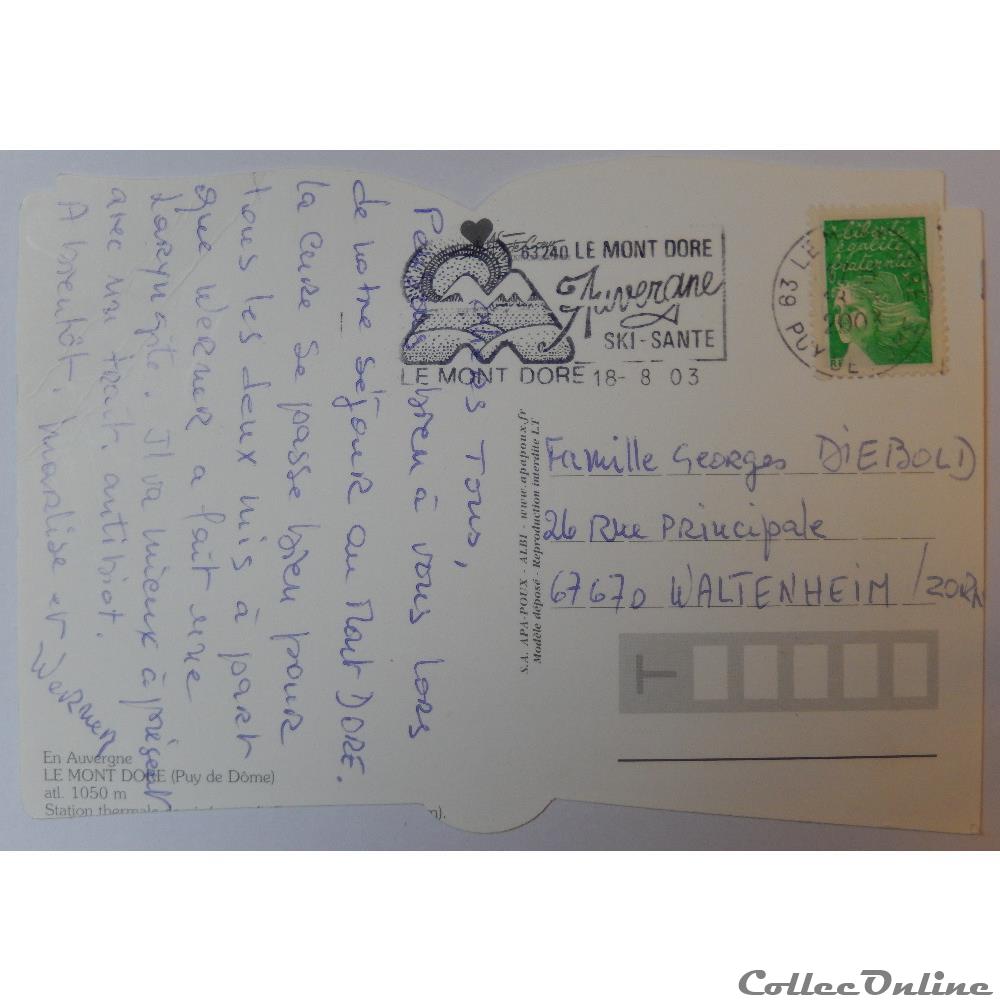 Amies Tous,
Pensons bien à vous lors
de notre séjour au Mont DORE.
la cure se passe bien pour
tous les deux mis à part
que Werner a fait une
Laryngite. Il va mieux à présent
avec un trait. antibiot.
A bientôt. Marlise et Werner
63240 LE MONT DORE
Auvergne
SKI-SANTE
LE MONT DORE 18-8 03
63 LE
PUY DE
liberté
égalité
fraternité
RF
S.A. APA-POUX - ALBI - www.apapoux.fr
Modèle déposé - Reproduction interdite LT
Famille Georges DIEBOLD
26 Rue Principale
67670 WALTENHEIM / ZORN
T
En Auvergne
LE MONT DORE (Puy de Dôme)
atl. 1050 m
Station thermale
CollecOnline